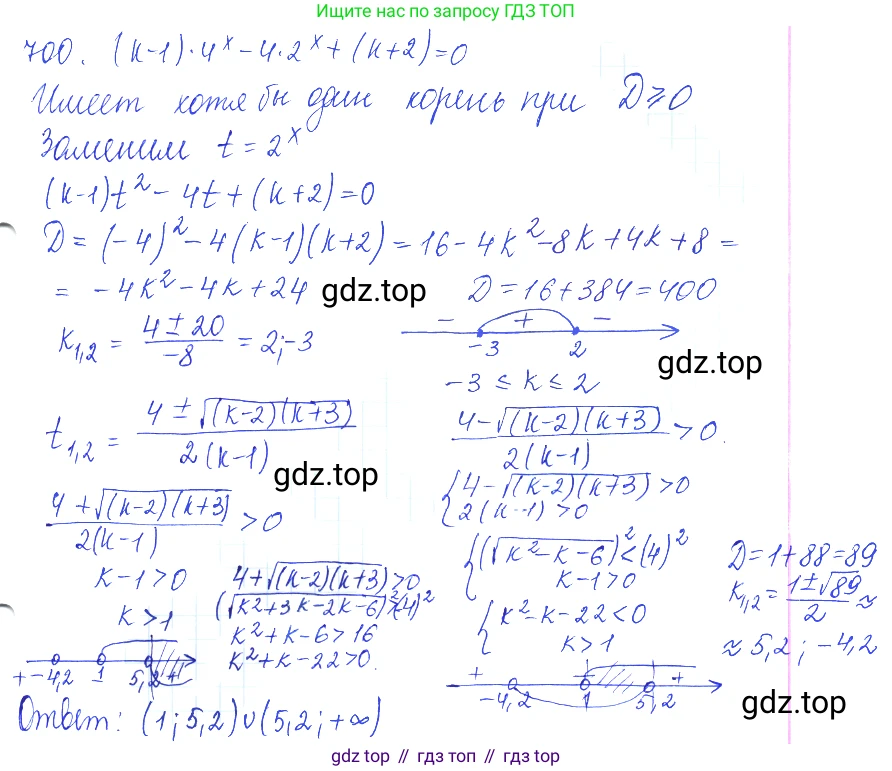 Ищите нас по запросу ГДЗ ТОП
700. (k-1)·4^x - 4·2^x + (k+2) = 0
Имеет хотя бы один корень при D ≥ 0
Заменим t = 2^x
(k-1)t^2 - 4t + (k+2) = 0
D = (-4)^2 - 4(k-1)(k+2) = 16 - 4k^2 - 8k + 4k + 8 =
= -4k^2 - 4k + 24 gdz.top D = 16 + 384 = 400
k_{1,2} = (4 ± 20)/(-8) = 2; -3
- + -
-3 2
gdz.top
-3 ≤ k ≤ 2
t_{1,2} = (4 ± √((k-2)(k+3)))/(2(k-1))
gdz.top
(4 + √((k-2)(k+3)))/(2(k-1)) > 0
k-1 > 0 4 + √((k-2)(k+3)) > 0
k > 1 (√(k^2+3k-2k-6))^2 > (4)^2
k^2 + k - 6 > 16
k^2 + k - 22 > 0
+ -4,2 1 5,2 +
(4 - √((k-2)(k+3)))/(2(k-1)) > 0.
{ 4 - √((k-2)(k+3)) > 0
2(k-1) > 0
{ (√(k^2-k-6))^2 < (4)^2
k-1 > 0
{ k^2 - k - 22 < 0
k > 1
D = 1 + 88 = 89
k_{1,2} = (1 ± √89)/2 ≈
≈ 5,2; -4,2
+ +
-4,2 1 5,2
gdz.top
Ответ: (1; 5,2) ∪ (5,2; +∞)
gdz top // гдз топ // gdz top